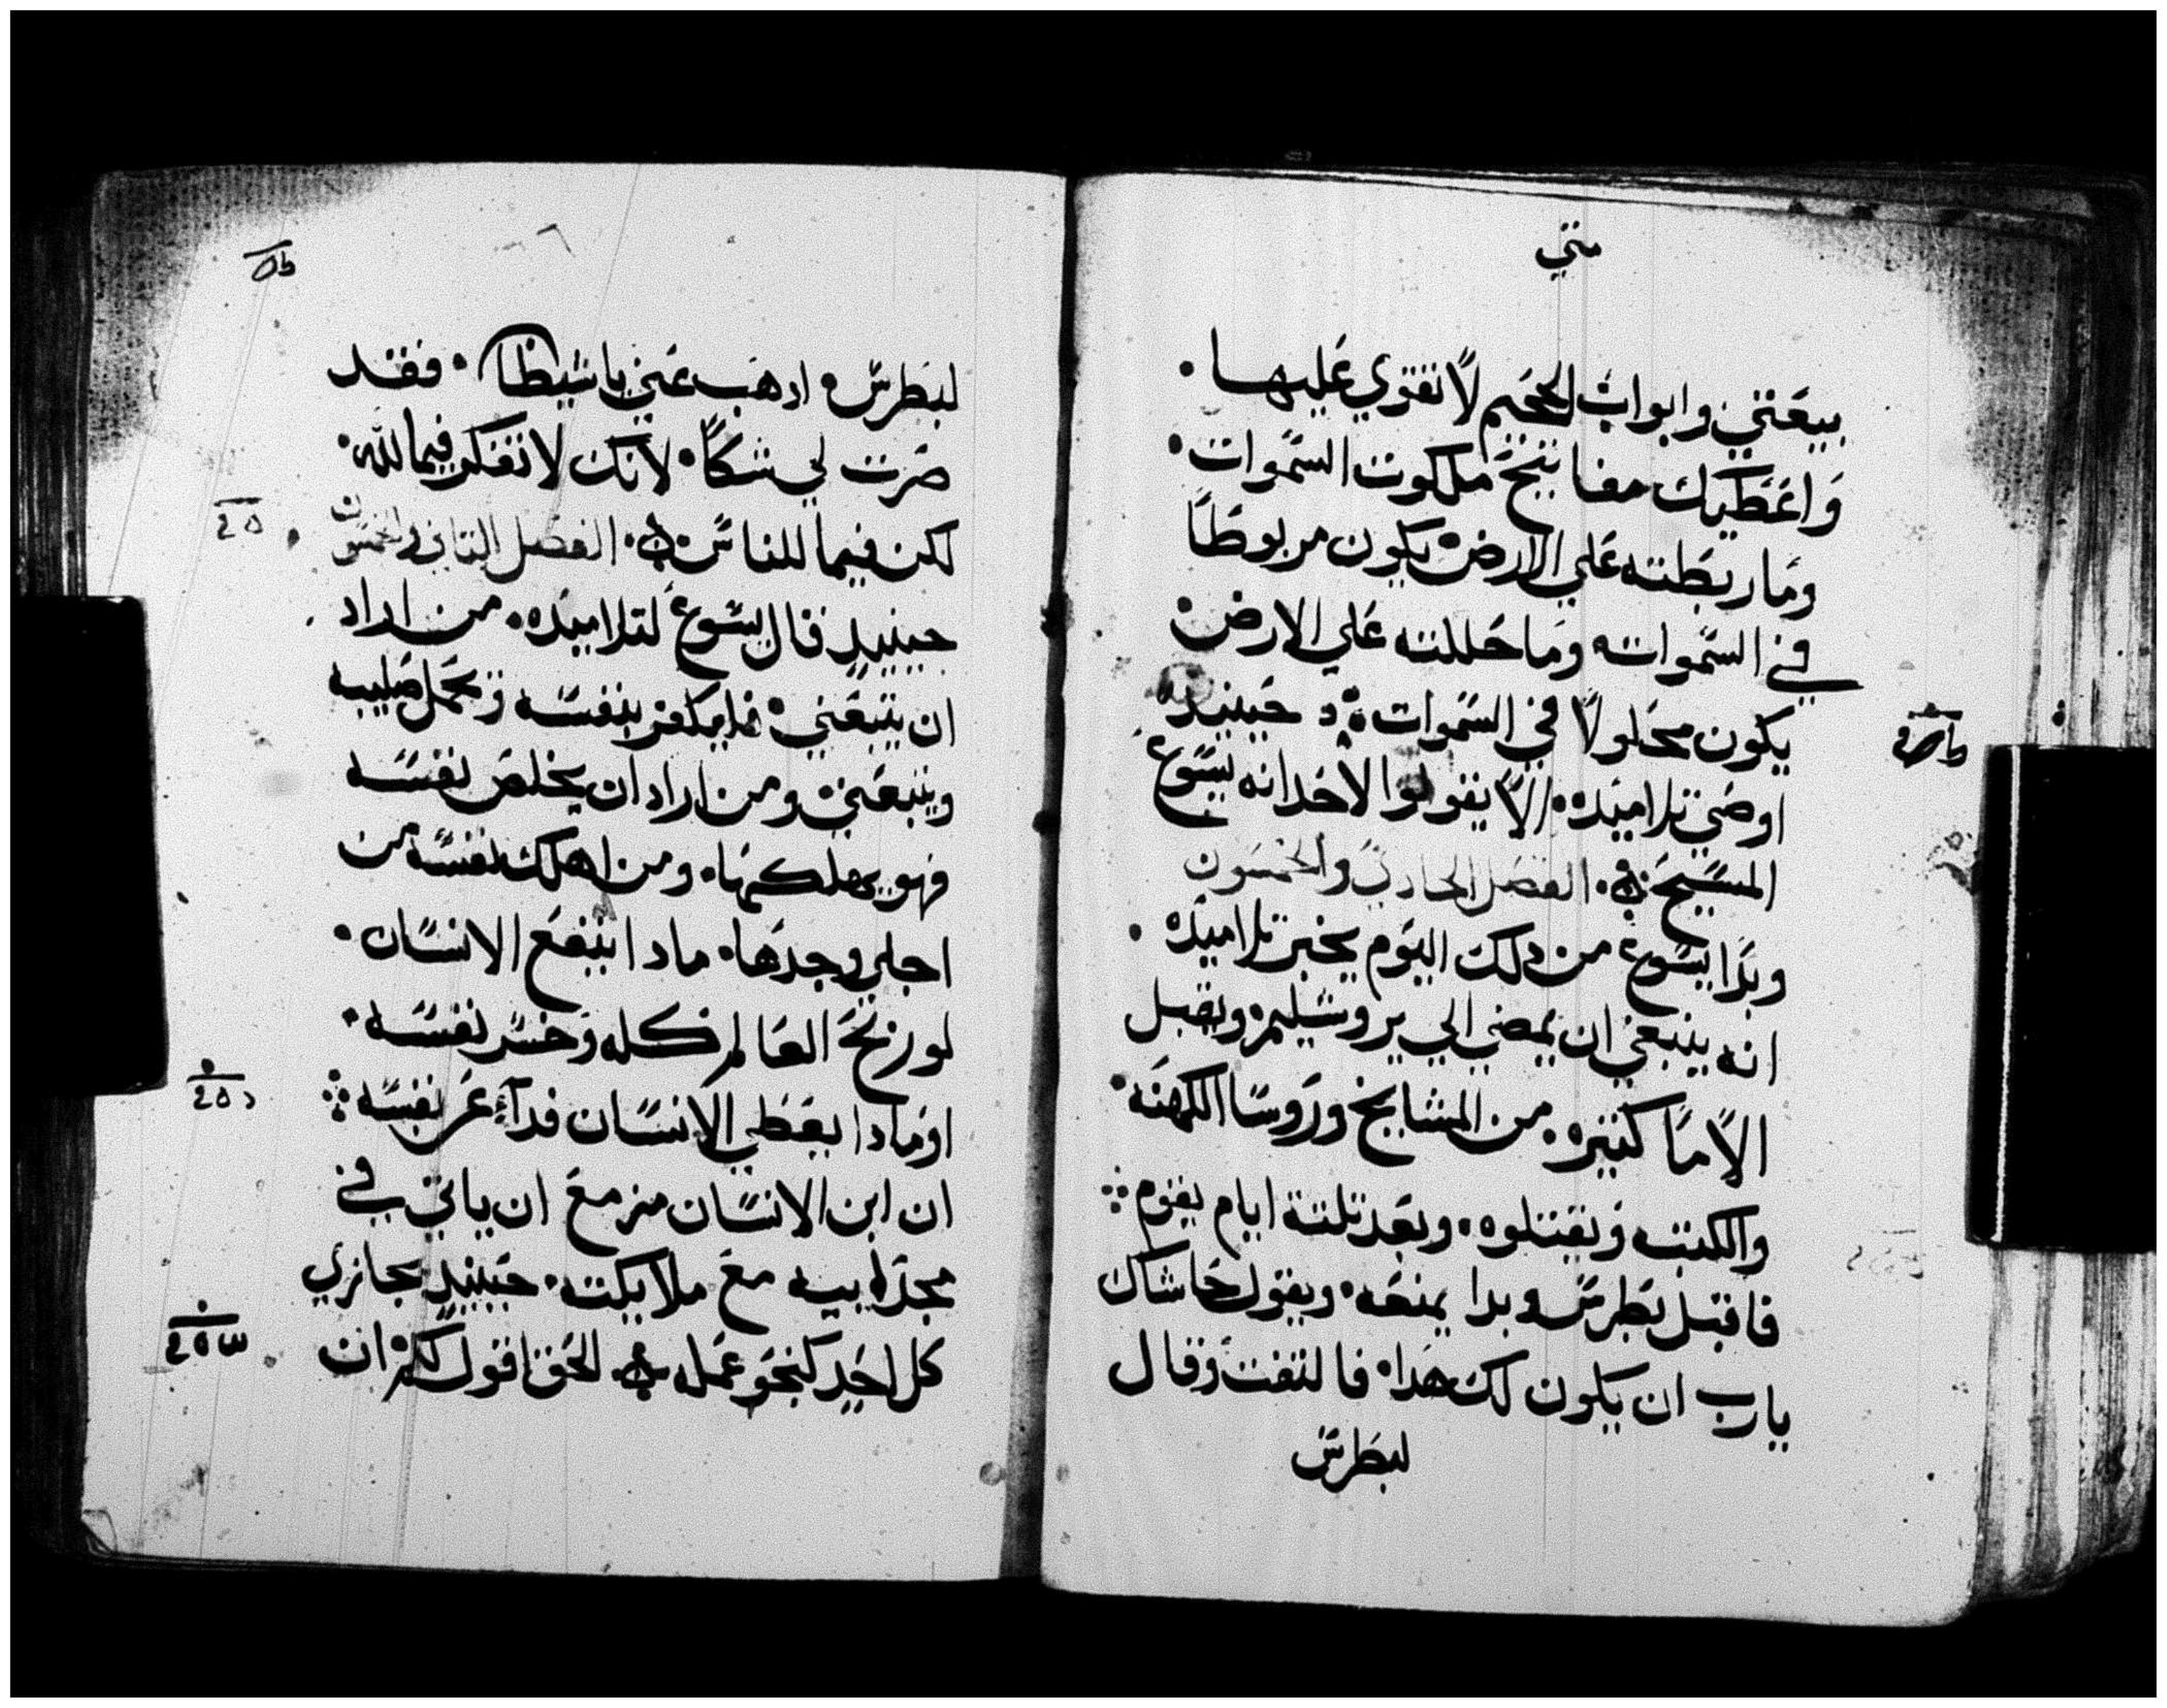 متي
بيعتي وابواب الجحيم لا تقوي عليها.
واعطيك مفاتيح ملكوت السموات.
وما ربطته علي الارض يكون مربوطًا
في السموات وما حللته علي الارض
يكون محلولًا في السموات حينيد
اوصي تلاميده. الا يقولوا لاحد انه يسوع
المسيح. الفصل الحادي والخمسون
وبدا يسوع من دلك اليوم يخبر تلاميده.
انه ينبغي ان يمضي الي يروشليم ويقبل
الامًا كتيره. من المشايخ وروسا الكهنه.
والكتبه ويقتلوه. وبعد تلتة ايام يقوم
فاقبل بطرس وبدا يمنعه. ويقول حاشاك
يارب ان يكون لك هدا. فالتفت وقال
لبطرس
لبطرس. ادهب عني ياشيطان. فقد
صرت لي شكًا. لانك لا تفكر فيما لله.
لكن فيما للناس. الفصل التاني والخمسون
حينيدٍ قال يسوع لتلاميده. من اراد
ان يتبعني. فليكفر بنفسه ويحمل صليبه
ويتبعني ومن اراد ان يخلص نفسه
فهو يهلكها. ومن اهلك نفسه من
اجلي وجدها. مادا ينفع الانسان.
لو ربح العالم كله وخسر نفسه.
او مادا يعطي الانسان فدآء عن نفسه
ان ابن الانسان مزمع ان ياتي في
مجد ابيه مع ملايكته. حينيدٍ يجازي
كل احدٍ كنحو عمله. الحق اقول لكم ان